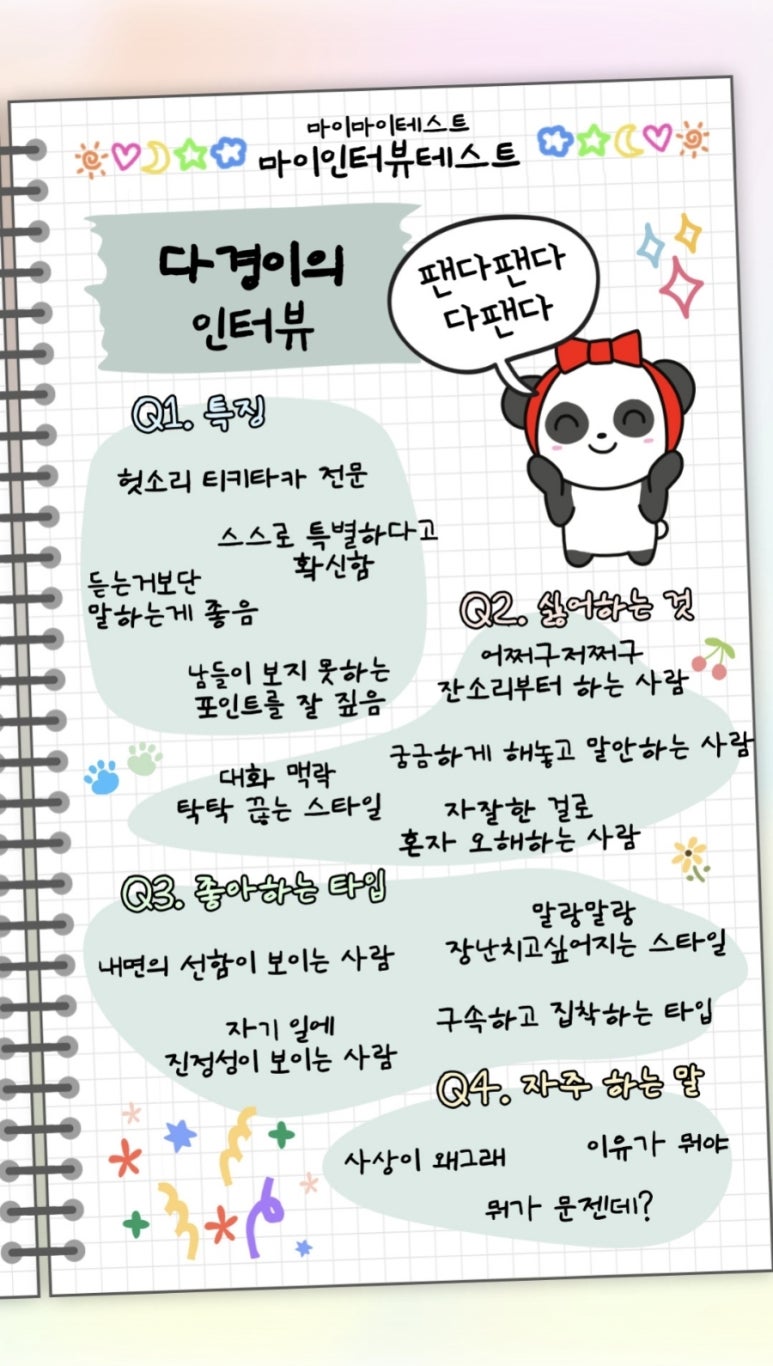 마이마이테스트
마이인터뷰테스트
다경이의
인터뷰
팬다팬다
다팬다
Q1. 특징
헛소리 티키타카 전문
스스로 특별하다고
확신함
듣는거보단
말하는게 좋음
남들이 보지 못하는
포인트를 잘 짚음
Q2. 싫어하는 것
어쩌구저쩌구
잔소리부터 하는 사람
궁금하게 해놓고 말안하는 사람
대화 맥락
탁탁 끊는 스타일
자잘한 걸로
혼자 오해하는 사람
Q3. 좋아하는 타입
내면의 선함이 보이는 사람
말랑말랑
장난치고싶어지는 스타일
자기 일에
진정성이 보이는 사람
구속하고 집착하는 타입
Q4. 자주 하는 말
사상이 왜그래
이유가 뭐야
뭐가 문젠데?